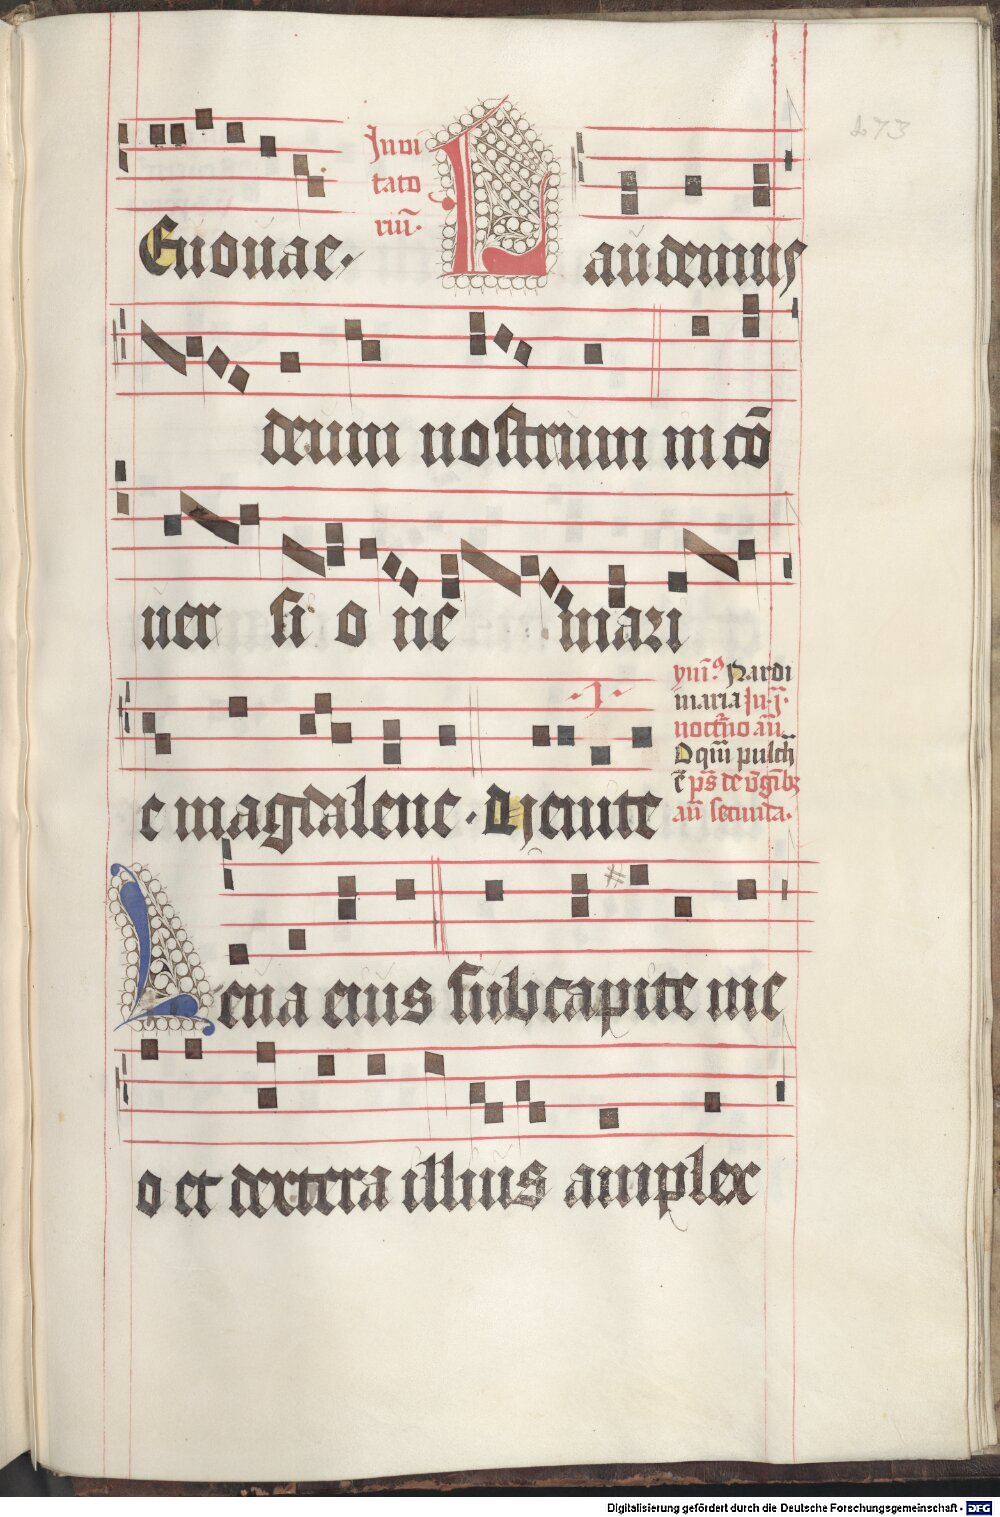 273
Euouae·
Inui
tato
riū·
Laudemus
deum nostrum in cō
uer si o ne mari
e magdalene· P̄s venite
ymꝰ Nardi
maria In·j·
noct̄no añ
O qm̄ pulch̄
ē p̄s de v̄gībꝫ
añ secunda·
·I·
Leua eius sub capite me
o et dextera illius amplex
Digitalisierung gefördert durch die Deutsche Forschungsgemeinschaft - DFG